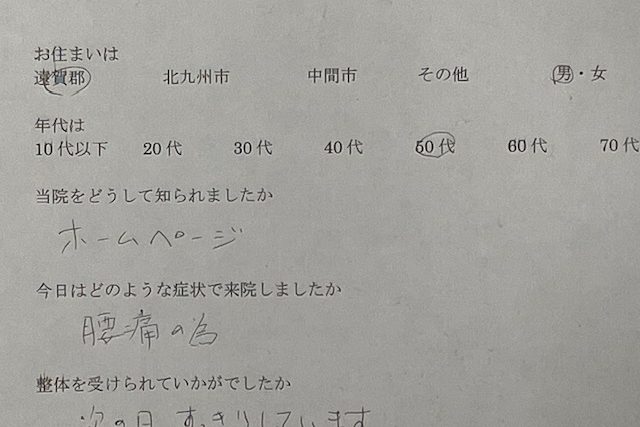 お住まいは
遠賀郡 北九州市 中間市 その他 男・女
年代は
10代以下 20代 30代 40代 50代 60代 70代
当院をどうして知られましたか
ホームページ
今日はどのような症状で来院しましたか
腰痛の為
整体を受けられていかがでしたか
次の日 すっきりしています